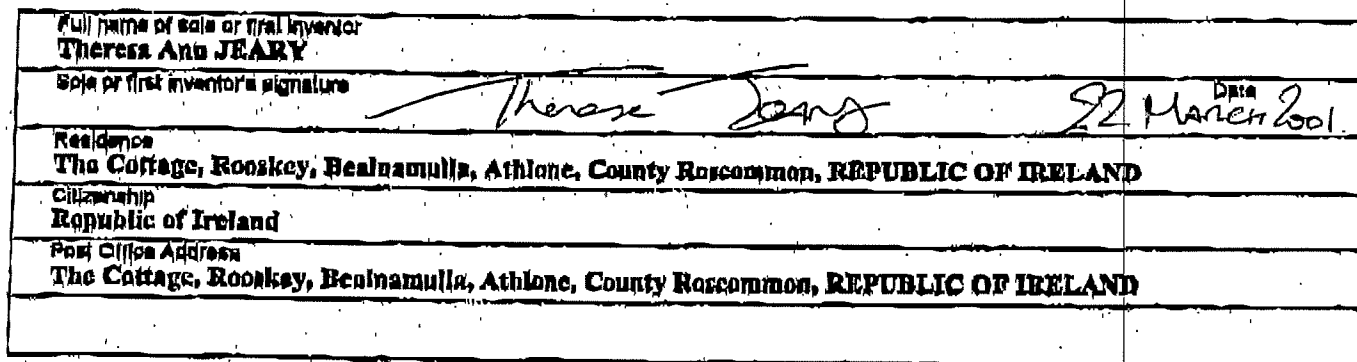 Full name of sole or first inventor
Theresa Ann JEARY
Sole or first inventor's signature
Therese Jeary
Date
22 MARCH 2001.
Residence
The Cottage, Rooskey, Bealnamulla, Athlone, County Roscommon, REPUBLIC OF IRELAND
Citizenship
Republic of Ireland
Post Office Address
The Cottage, Rooskey, Bealnamulla, Athlone, County Roscommon, REPUBLIC OF IRELAND